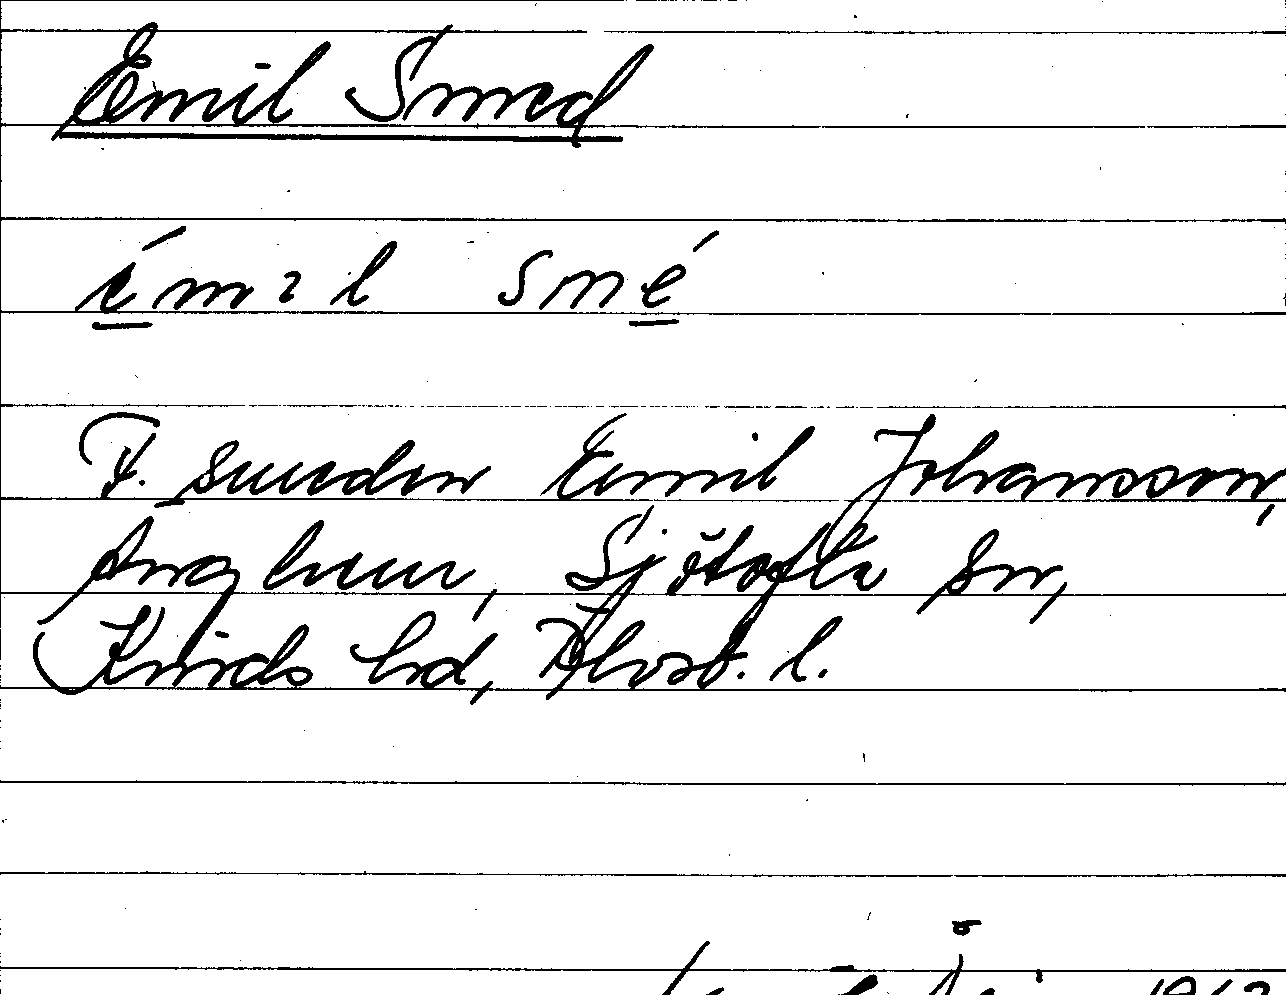 Emil Smed
émıl smé
F. smeden Emil Johansson,
Änghem, Sjötofta sn,
Kinds hd, Älvsb. l.